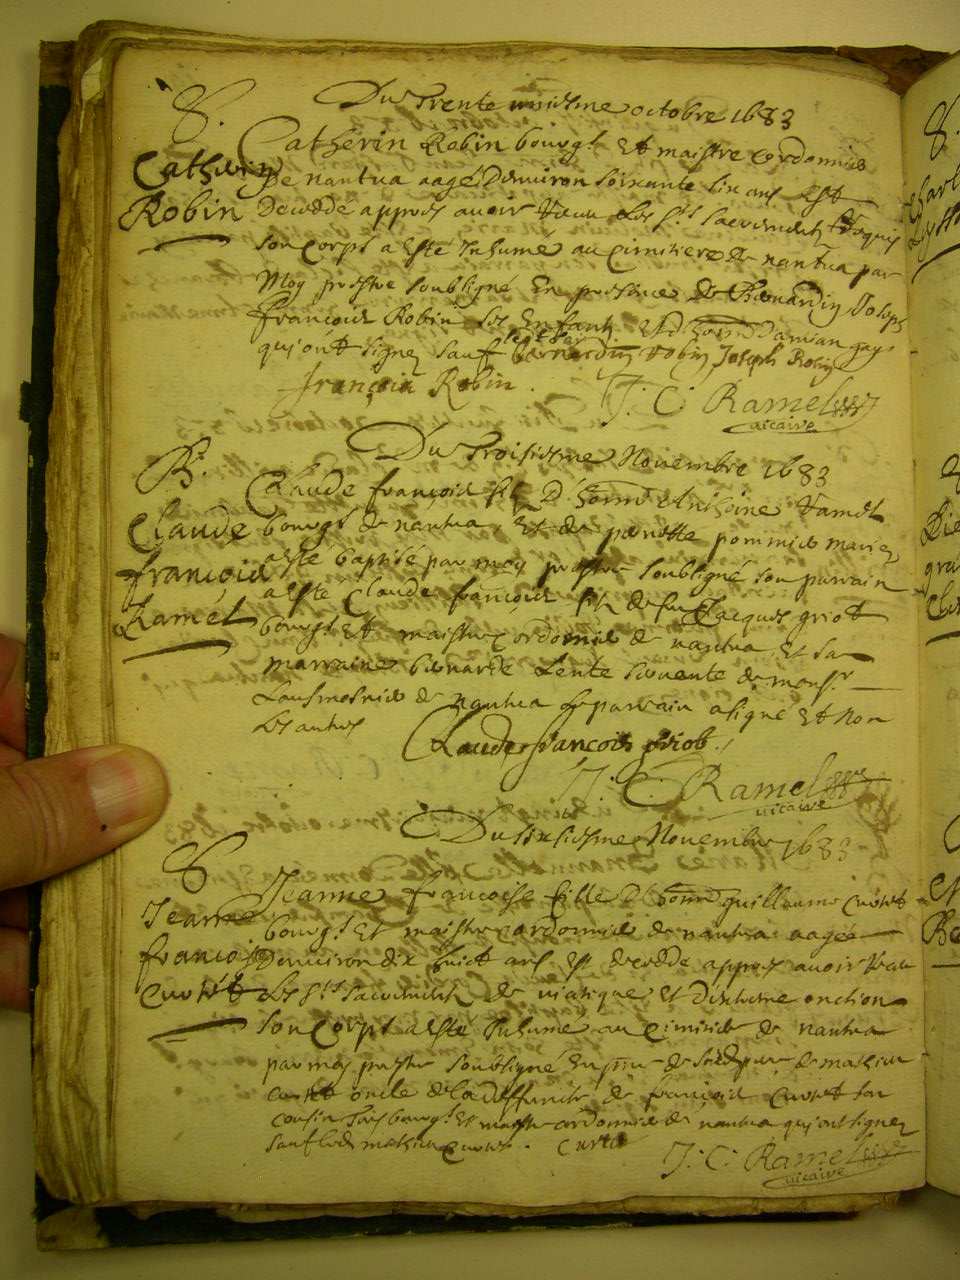 S.
Du Trente uniesme octobre 1683
Catherin
Robin
Catherin Robin bourgs Et maistre cordonnier
De nantua aagé Denviron soixante cinq ans Est
Decedde appres avoir Receu Les Sts sacrements
son corps a Este Inhumé au Cimitiere De nantua par
Moy prestre soubsigné En presence De Bernardin Joseph
François Robin ses Enfants
qui ont signez sauf bernardin Robin Joseph Robin
françois Robin.
J. C. Ramel
vicaire
B.
Du Troisiesme Novembre 1683
Claude
françois
Ramel
Claude françois fils D'honn Anthoine Ramel
bourgs de nantua, Et de pernette pommier mariez
a esté baptisé par moy prestre soubsigné son parrain
a Esté Claude françois fils de feu Jacques griot
bourgs Et maistre Cordonnier de nantua, Et sa
marraine bernarde Lente servente de monsr
Lausmosnier de Nantua Le parrain a signé Et non
Les autres
Claude francois Griot.
J. C. Ramel
vicaire
S
Du sixiesme Novembre 1683
Jeanne
françoise
Curtet
Jeanne francoise fille D honn guillaume Curtet
bourgs Et maistre cordonnier de nantua aagée
Denviron dix huict ans Est decedde appres avoir Receu
Les Sts Sacrements de viatique Et Dextreme onction
son Corps a este Inhume au Cimitier de nantua
par moy prestre soubsigné En pnce de sondt pere de mathieu
curtet oncle de la deffuncte de françois Curtet son
cousin tous bourgs Et maistre cordonnier de nantua qui ont signez
sauf Led. mathieu Curtet. Curtet
J. C. Ramel
vicaire